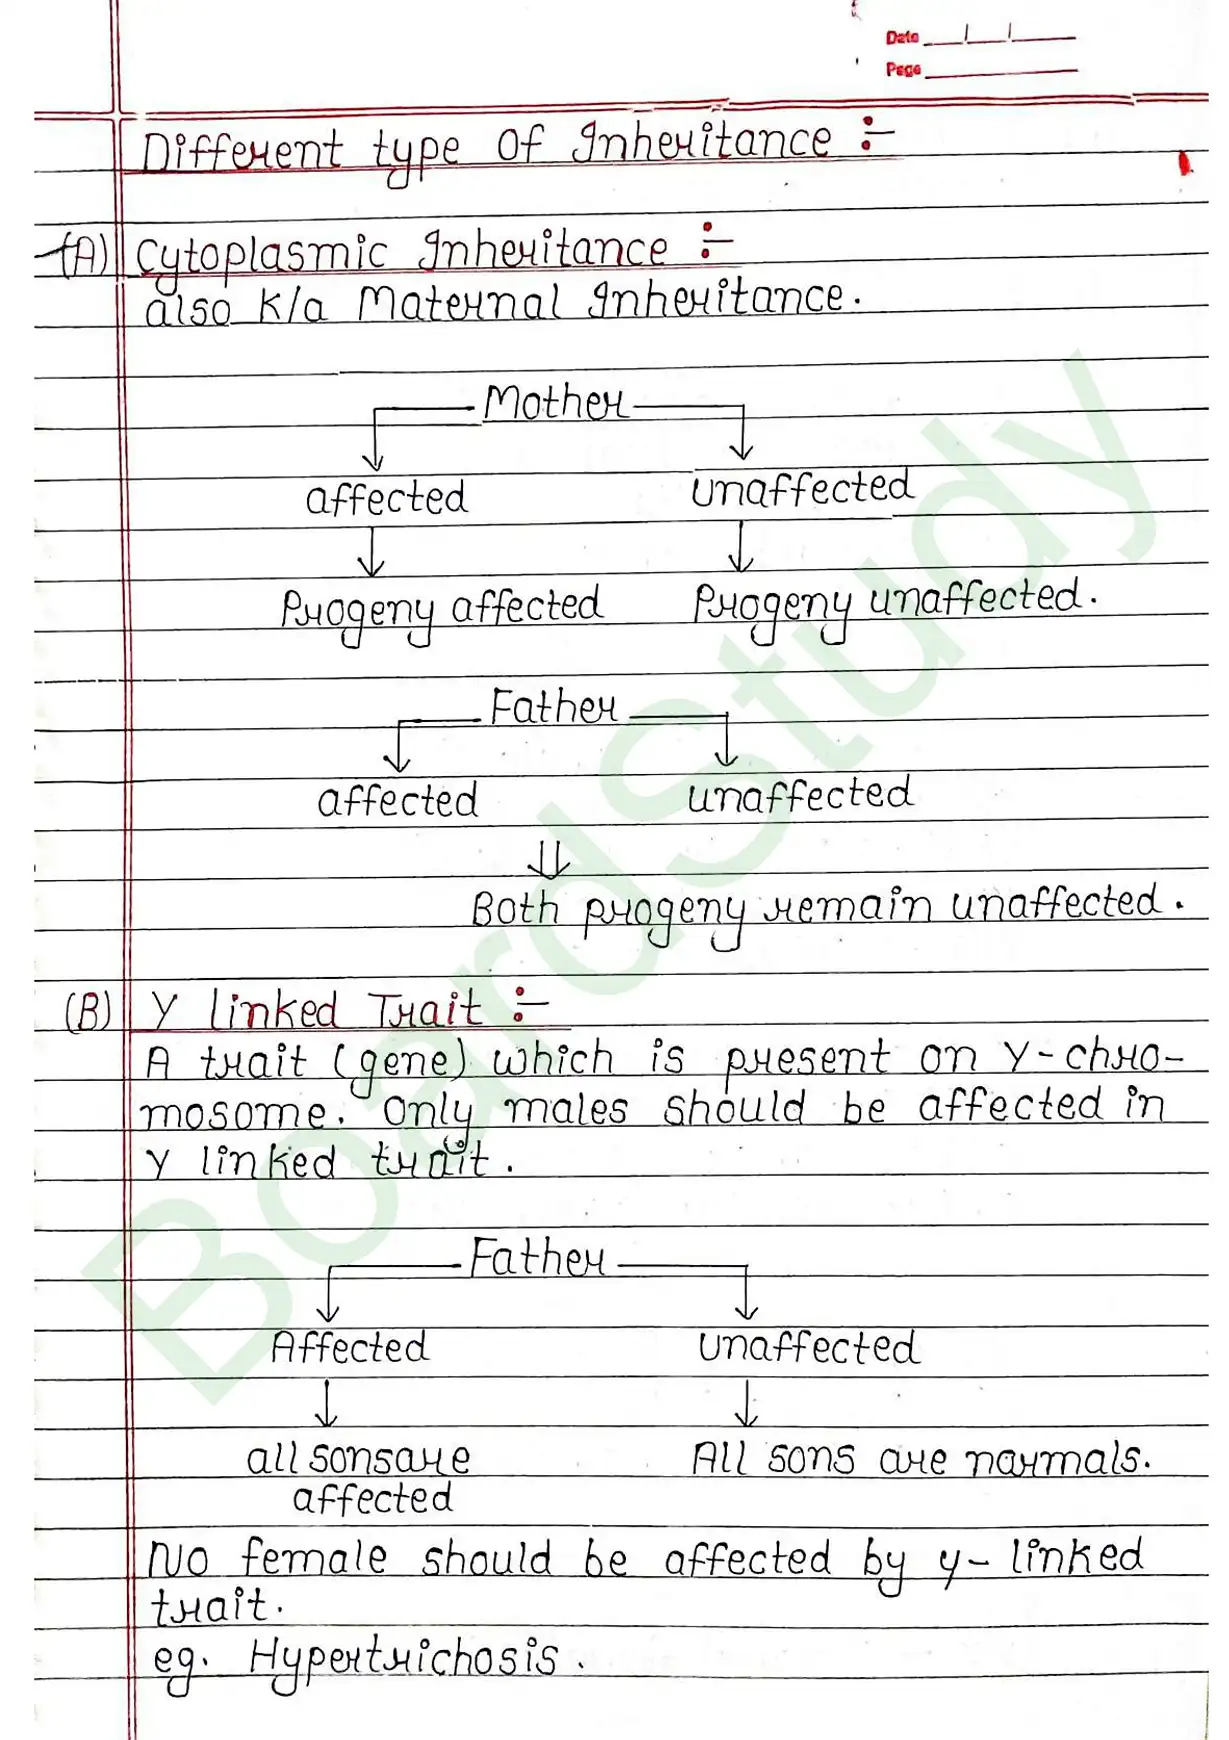 Date
Page
Different type of Inheritance :-
(A) Cytoplasmic Inheritance :-
also K/a Maternal Inheritance.
Mother
affected unaffected
Progeny affected Progeny unaffected.
Father
affected unaffected
Both progeny remain unaffected.
(B) Y linked Trait :-
A trait (gene) which is present on Y-chro-
mosome. Only males should be affected in
Y linked trait.
Father
Affected unaffected
all sons are All sons are normals.
affected
No female should be affected by y-linked
trait.
eg. Hypertrichosis.
BoardStudy